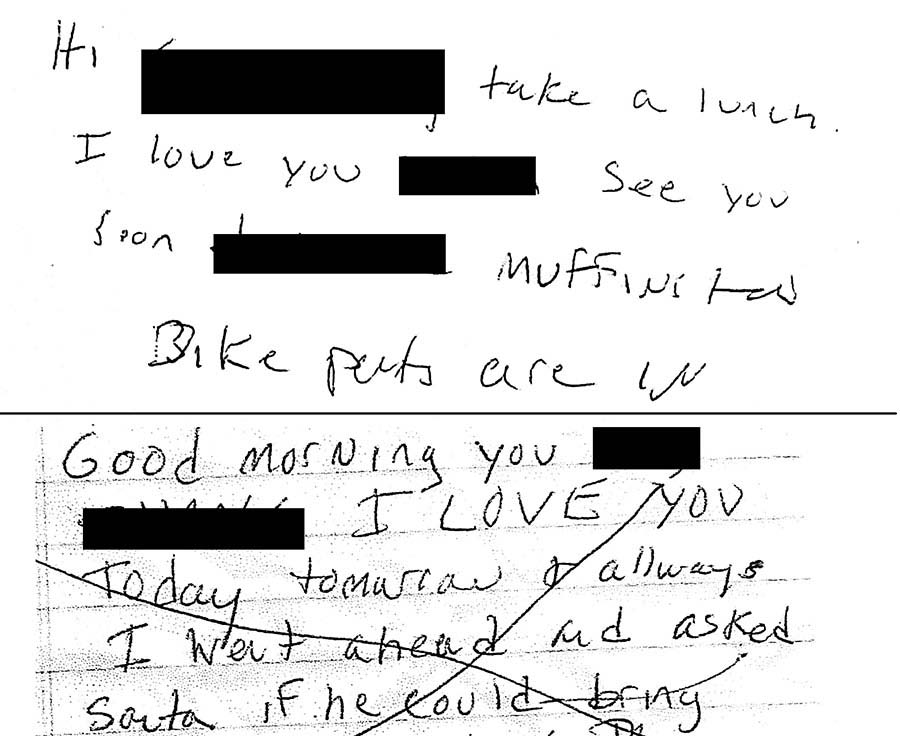 Hi take a lunch.
I love you See you
Soon
MUFFINS
Bike parts are IN
Good morning you
I LOVE YOU
Today tomarrow & allways
I Went ahead and asked
Santa if he could bring